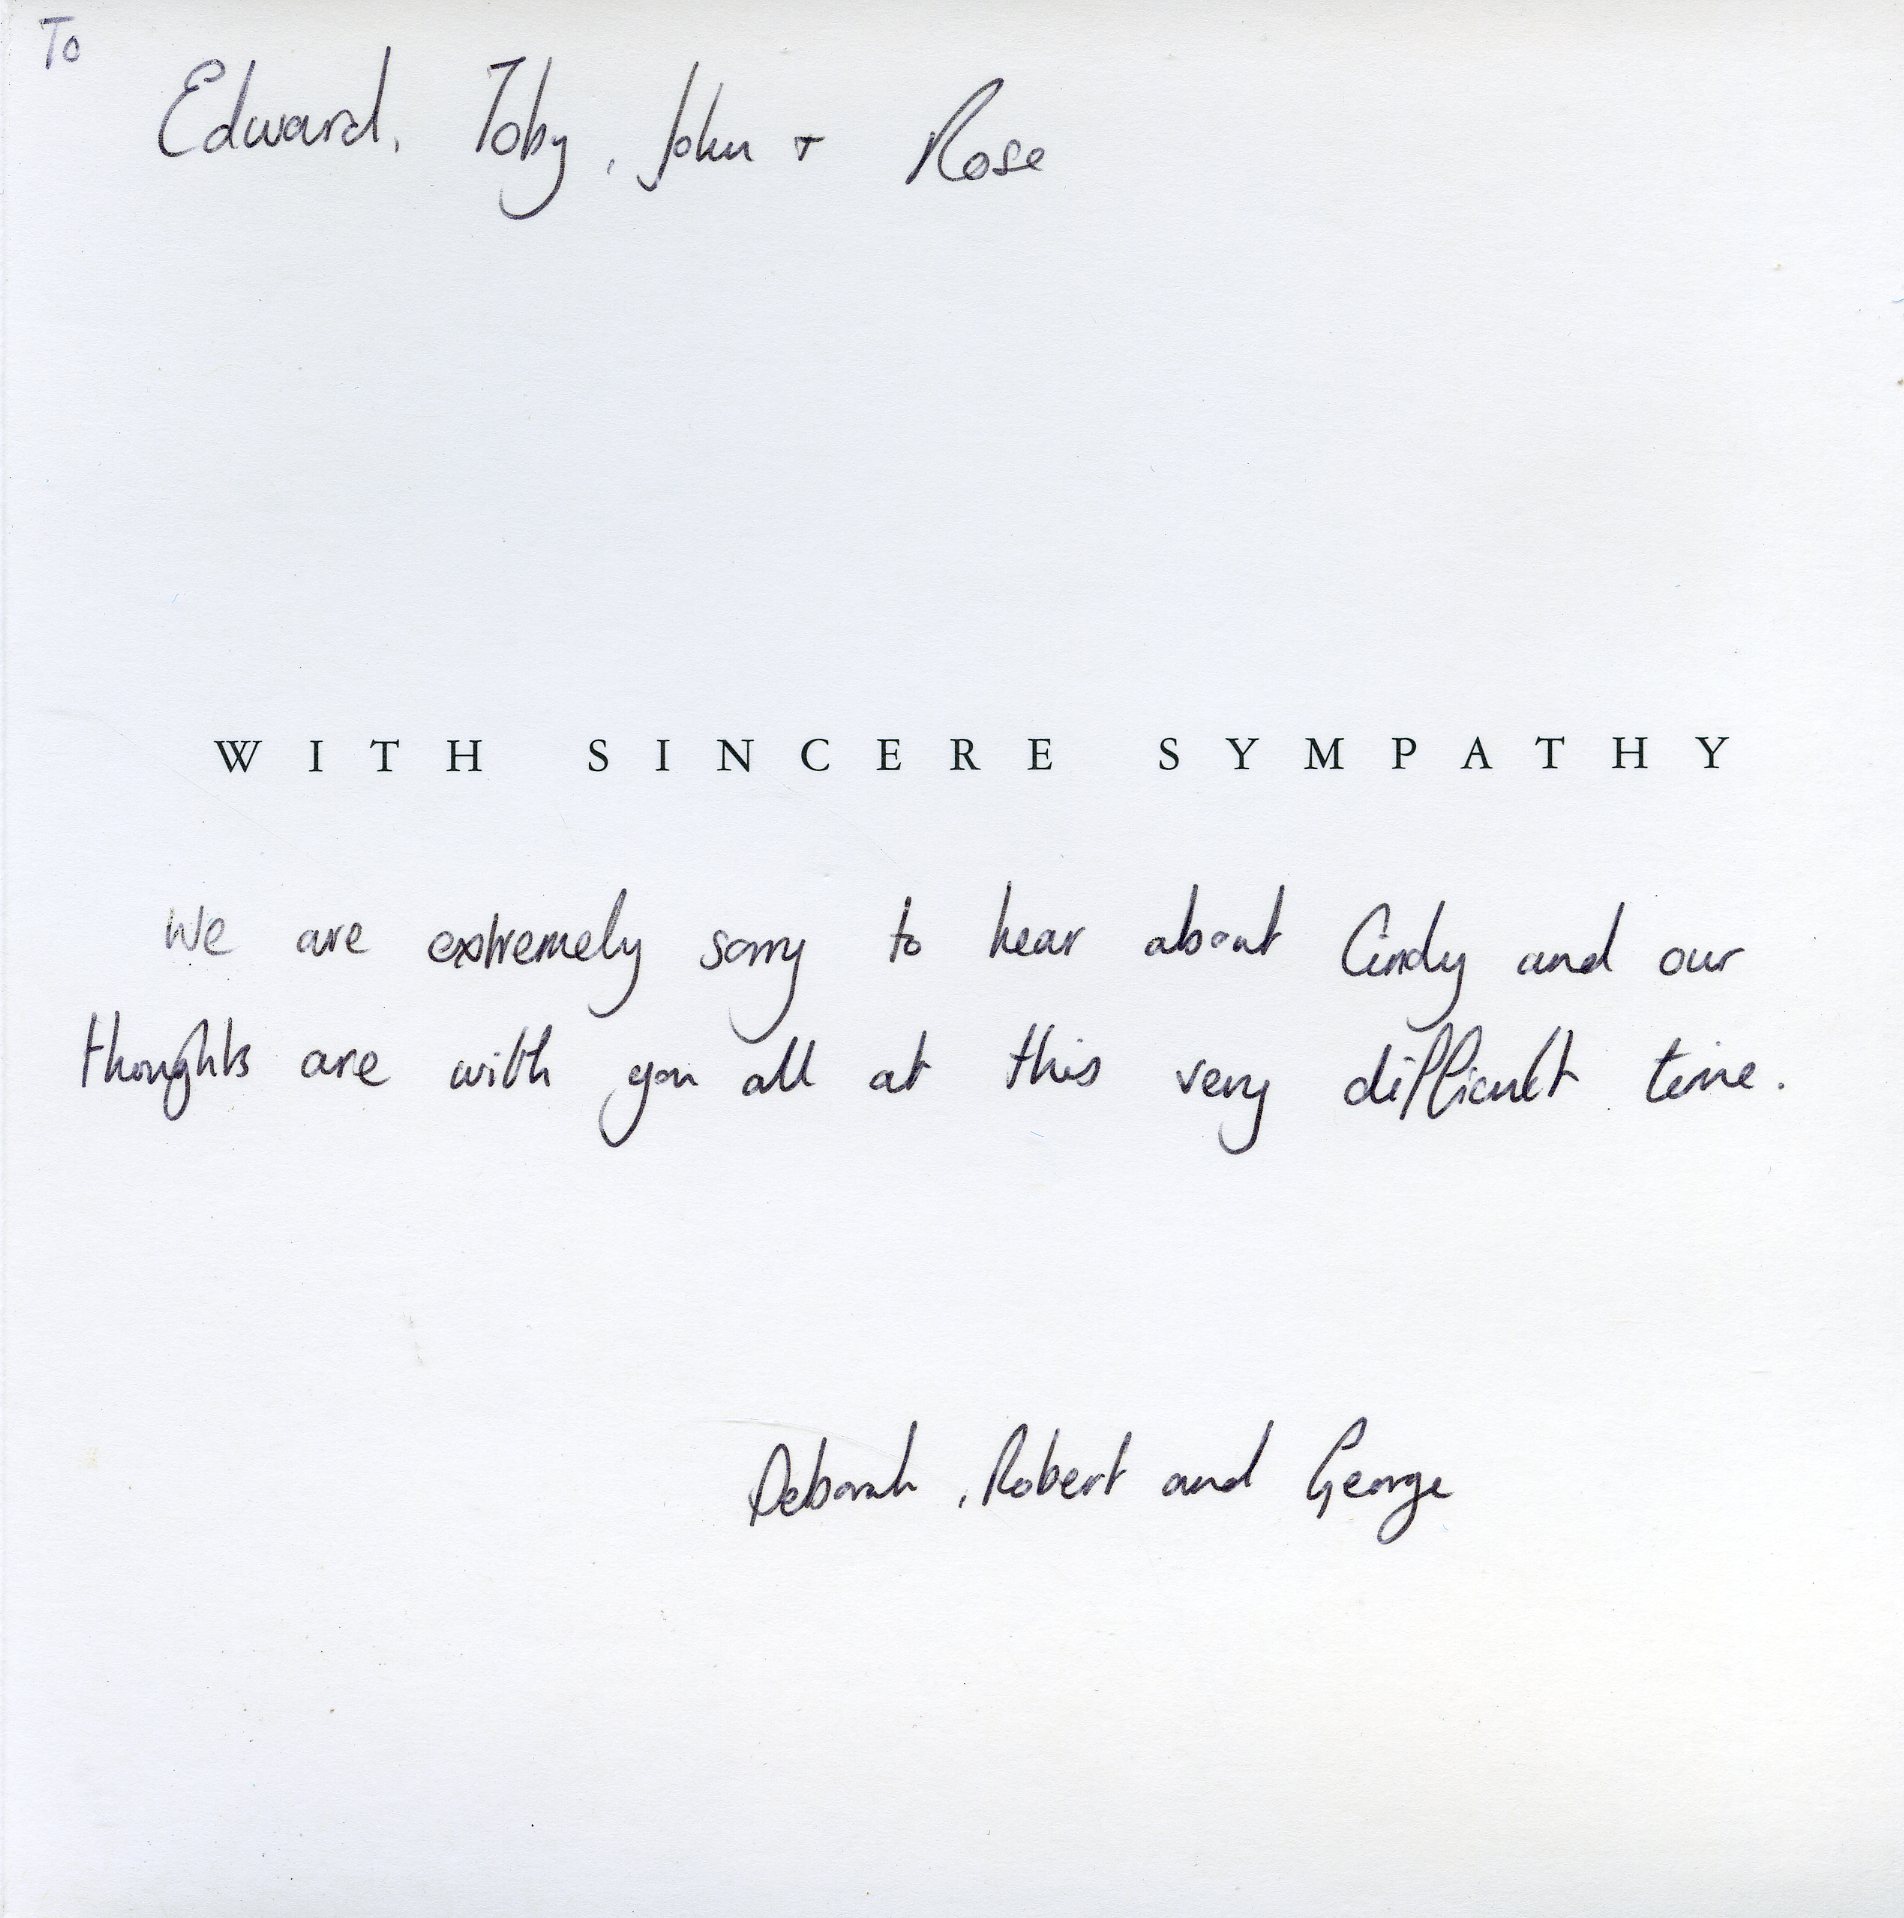 To
Edward, Toby, John + Rose
WITH SINCERE SYMPATHY
We are extremely sorry to hear about Cindy and our
thoughts are with you all at this very difficult time.
Deborah, Robert and George